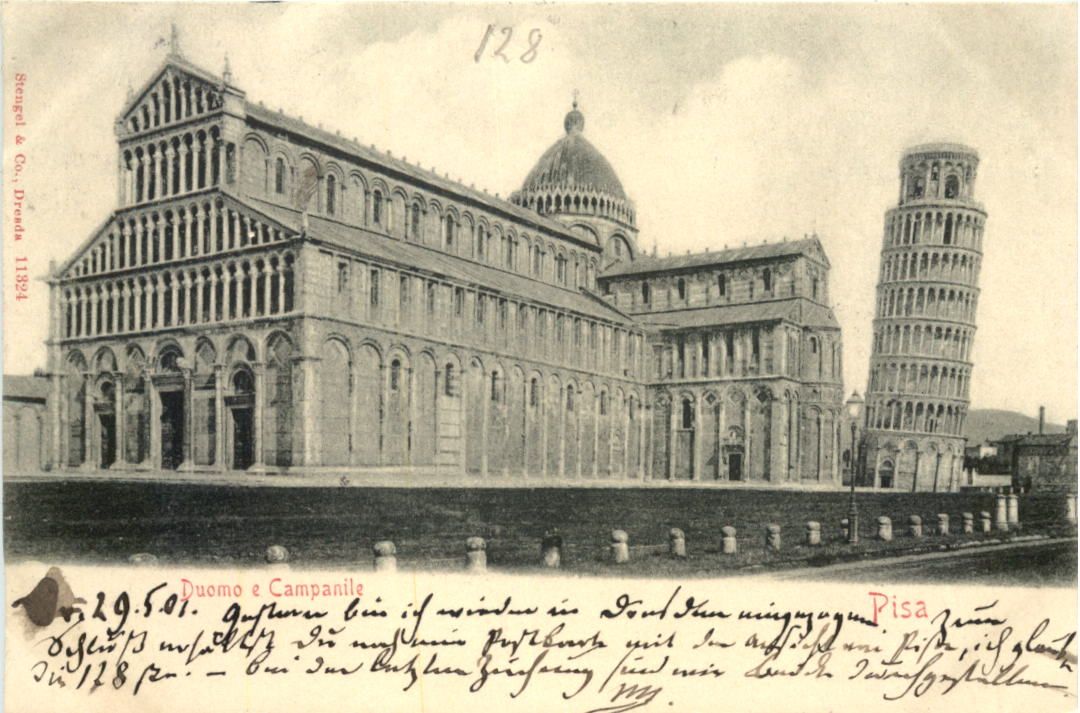 128
Stengel & Co., Dresda 11324
Duomo e Campanile
Pisa
29.5.01. Gestern bin ich wieder in Dresden eingezogen. Zum
Schluß erhältst Du noch eine Postkarte mit der Ansicht von Pisa, ich glaube
die 128 ste. – bei der letzten Ziehung sind wir beide durchgefallen.